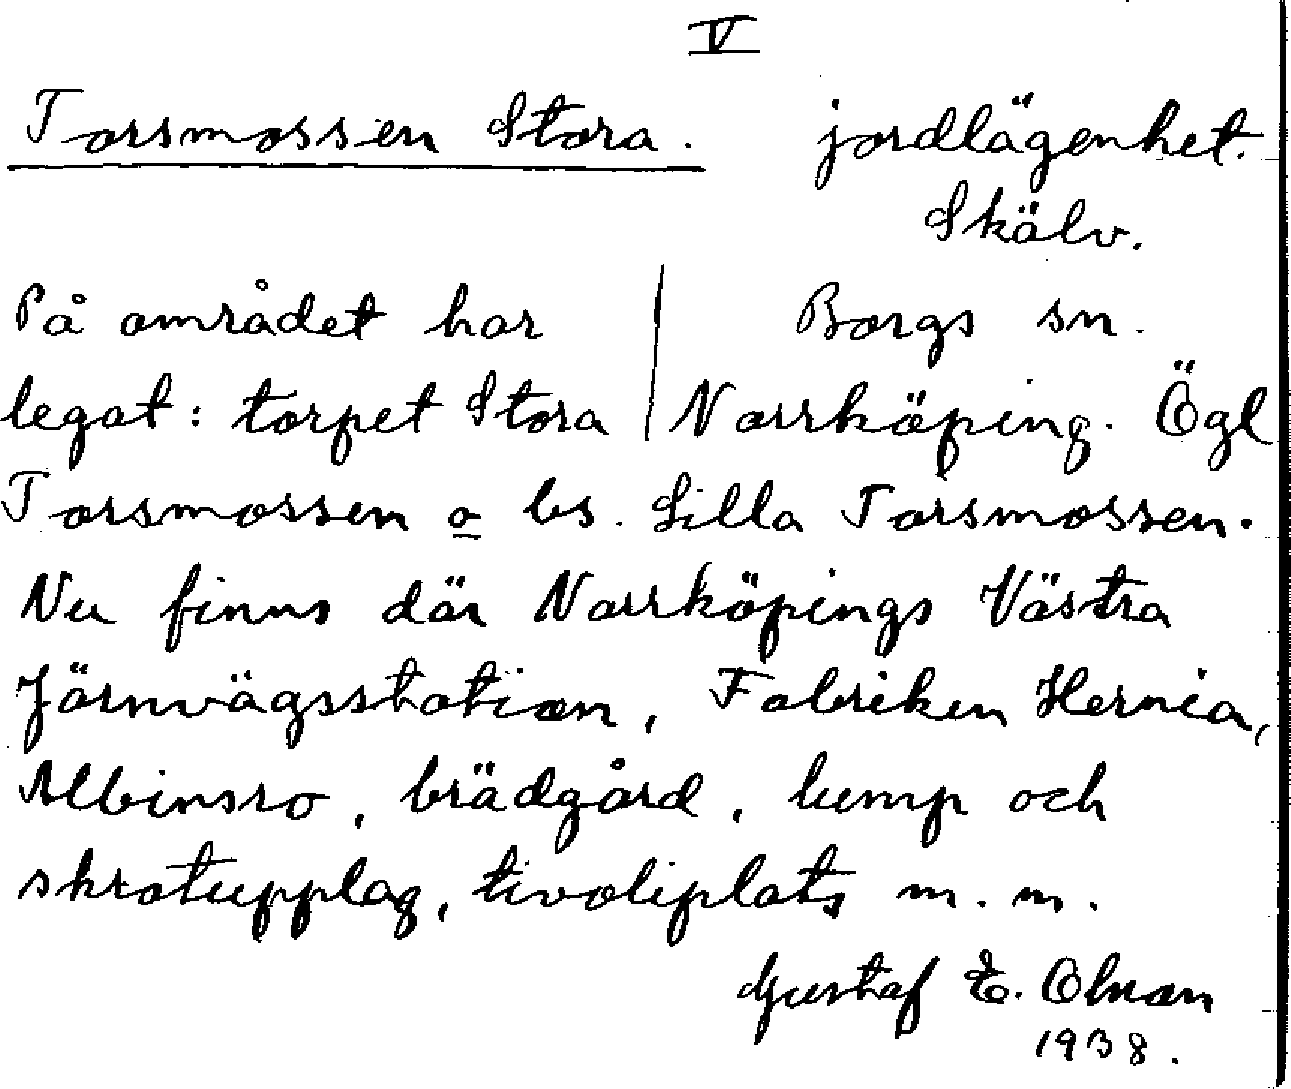 V
Torsmossen Stora. jordlägenhet.
Skälv.
På området har | Borgs sn.
legat: torpet Stora | Norrköping. Ögl
Torsmossen o bs. Lilla Torsmossen.
Nu finns där Norrköpings Västra
Järnvägsstation, Fabriken Hernia,
Albinsro, brädgård, lump och
skrotupplag, tivoliplats m. m.
Gustaf E. Olson
1938.